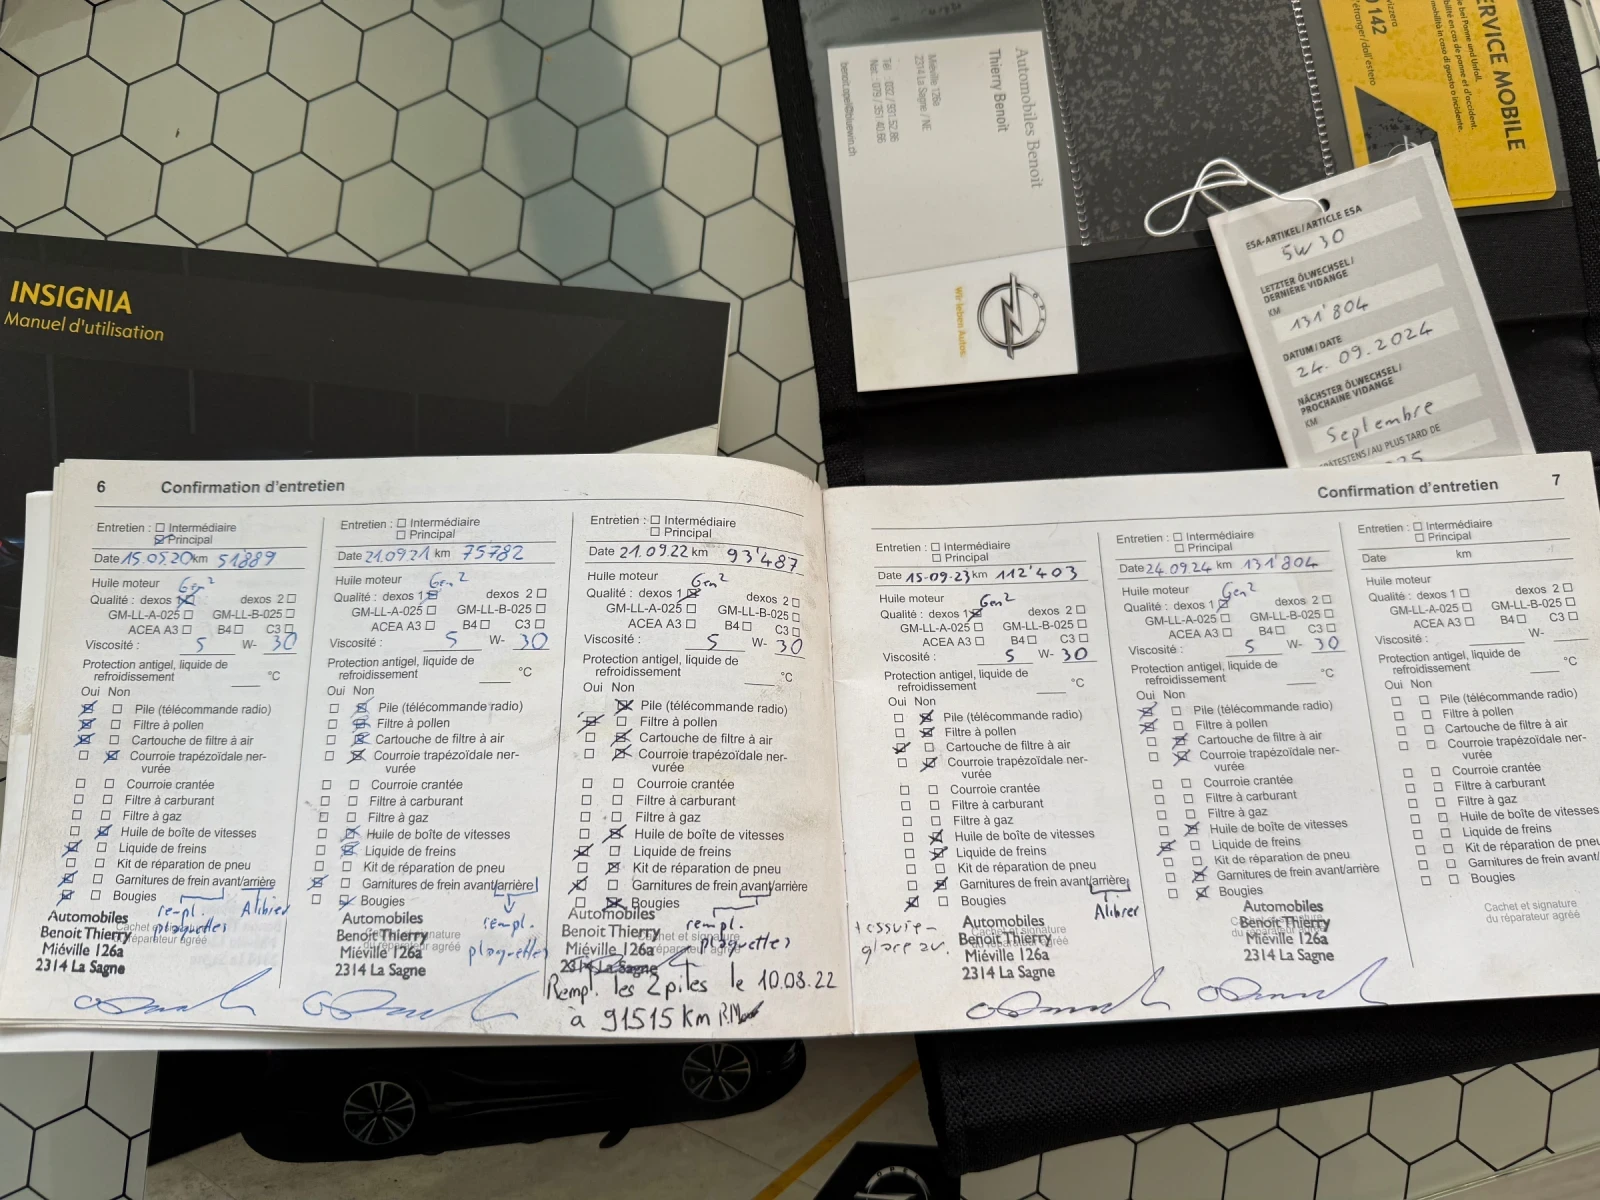 SERVICE MOBILE
e bei Panne und Unfall.
bilité en cas de panne et d'accident.
mobilità in caso di guasto o incidente.
vizzera
0 142
l'étranger/dall'estero
Automobiles Benoit
Thierry Benoit
Miéville 126a
2314 La Sagne / NE
Tél : 032 / 931.52.86
Nat. : 079 / 351.40.66
benoit.opel@bluewin.ch
OPEL
Wir leben Autos.
ESA-ARTIKEL/ARTICLE ESA
5W30
LETZTER ÖLWECHSEL/
DERNIÈRE VIDANGE
KM
131'804
DATUM/DATE
24.09.2024
NÄCHSTER ÖLWECHSEL/
PROCHAINE VIDANGE
KM
Septembre
SPÄTESTENS/AU PLUS TARD DE
INSIGNIA
Manuel d'utilisation
6
Confirmation d'entretien
Entretien : Intermédiaire
Principal
Date 15.05.20 km 51889
Huile moteur Gen2
Qualité : dexos 1 dexos 2
GM-LL-A-025 GM-LL-B-025
ACEA A3 B4 C3
Viscosité : 5 W- 30
Protection antigel, liquide de
refroidissement °C
Oui Non
Pile (télécommande radio)
Filtre à pollen
Cartouche de filtre à air
Courroie trapézoïdale ner-
vurée
Courroie crantée
Filtre à carburant
Filtre à gaz
Huile de boîte de vitesses
Liquide de freins
Kit de réparation de pneu
Garnitures de frein avant/arrière
Bougies
rempl. plaquettes
Alibrer
Cachet et signature
du réparateur agréé
Automobiles
Benoit Thierry
Miéville 126a
2314 La Sagne
Entretien : Intermédiaire
Principal
Date 21.09.21 km 75782
Huile moteur Gen2
Qualité : dexos 1 dexos 2
GM-LL-A-025 GM-LL-B-025
ACEA A3 B4 C3
Viscosité : 5 W- 30
Protection antigel, liquide de
refroidissement °C
Oui Non
Pile (télécommande radio)
Filtre à pollen
Cartouche de filtre à air
Courroie trapézoïdale ner-
vurée
Courroie crantée
Filtre à carburant
Filtre à gaz
Huile de boîte de vitesses
Liquide de freins
Kit de réparation de pneu
Garnitures de frein avant/arrière
Bougies
rempl.
plaquettes
Automobiles
Benoit Thierry
Miéville 126a
2314 La Sagne
Entretien : Intermédiaire
Principal
Date 21.09.22 km 93'487
Huile moteur Gen2
Qualité : dexos 1 dexos 2
GM-LL-A-025 GM-LL-B-025
ACEA A3 B4 C3
Viscosité : 5 W- 30
Protection antigel, liquide de
refroidissement °C
Oui Non
Pile (télécommande radio)
Filtre à pollen
Cartouche de filtre à air
Courroie trapézoïdale ner-
vurée
Courroie crantée
Filtre à carburant
Filtre à gaz
Huile de boîte de vitesses
Liquide de freins
Kit de réparation de pneu
Garnitures de frein avant/arrière
Bougies
rempl.
plaquettes
Automobiles
Benoit Thierry
Miéville 126a
2314 La Sagne
Rempl. les 2 piles le 10.08.22
à 91515 km
Confirmation d'entretien
7
Entretien : Intermédiaire
Principal
Date 15-09-23 km 112'403
Huile moteur Gen2
Qualité : dexos 1 dexos 2
GM-LL-A-025 GM-LL-B-025
ACEA A3 B4 C3
Viscosité : 5 W- 30
Protection antigel, liquide de
refroidissement °C
Oui Non
Pile (télécommande radio)
Filtre à pollen
Cartouche de filtre à air
Courroie trapézoïdale ner-
vurée
Courroie crantée
Filtre à carburant
Filtre à gaz
Huile de boîte de vitesses
Liquide de freins
Kit de réparation de pneu
Garnitures de frein avant/arrière
Bougies
Alibrer
+ essuie-
glace av.
Automobiles
Benoit Thierry
Miéville 126a
2314 La Sagne
Entretien : Intermédiaire
Principal
Date 24.09.24 km 131'804
Huile moteur Gen2
Qualité : dexos 1 dexos 2
GM-LL-A-025 GM-LL-B-025
ACEA A3 B4 C3
Viscosité : 5 W- 30
Protection antigel, liquide de
refroidissement °C
Oui Non
Pile (télécommande radio)
Filtre à pollen
Cartouche de filtre à air
Courroie trapézoïdale ner-
vurée
Courroie crantée
Filtre à carburant
Filtre à gaz
Huile de boîte de vitesses
Liquide de freins
Kit de réparation de pneu
Garnitures de frein avant/arrière
Bougies
Automobiles
Benoit Thierry
Miéville 126a
2314 La Sagne
Entretien : Intermédiaire
Principal
Date km
Huile moteur
Qualité : dexos 1 dexos 2
GM-LL-A-025 GM-LL-B-025
ACEA A3 B4 C3
Viscosité : W-
Protection antigel, liquide de
refroidissement °C
Oui Non
Pile (télécommande radio)
Filtre à pollen
Cartouche de filtre à air
Courroie trapézoïdale ner-
vurée
Courroie crantée
Filtre à carburant
Filtre à gaz
Huile de boîte de vitesses
Liquide de freins
Kit de réparation de pneu
Garnitures de frein avant/
Bougies
Cachet et signature
du réparateur agréé
OPEL